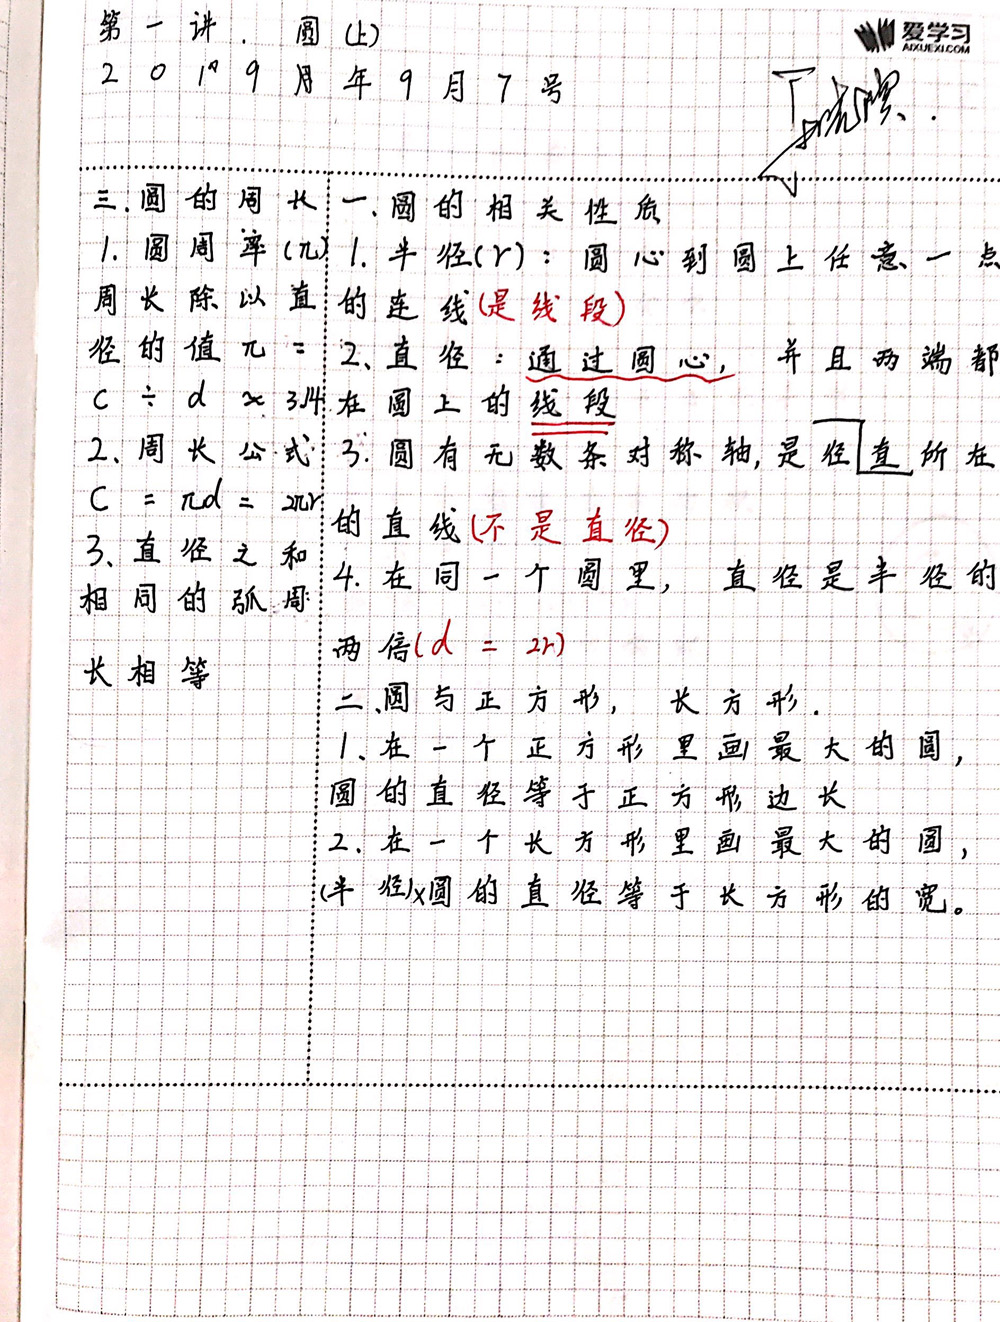 第一讲.圆(上)
2019月年9月7号
爱学习
AIXUEXI.COM
一.圆的相关性质
1.半径(r):圆心到圆上任意一点
的连线(是线段)
2、直径:通过圆心,并且两端都
在圆上的线段
3.圆有无数条对称轴,是径直所在
的直线(不是直径)
4.在同一个圆里,直径是半径的
两倍(d=2r)
二、圆与正方形,长方形.
1、在一个正方形里画最大的圆,
圆的直径等于正方形边长
2.在一个长方形里画最大的圆,
(半径)x圆的直径等于长方形的宽。
三.圆的周长
1.圆周率(π)
周长除以直
径的值π=
C÷d≈3.14
2、周长公式
C=πd=2πr
3、直径之和
相同的弧周
长相等